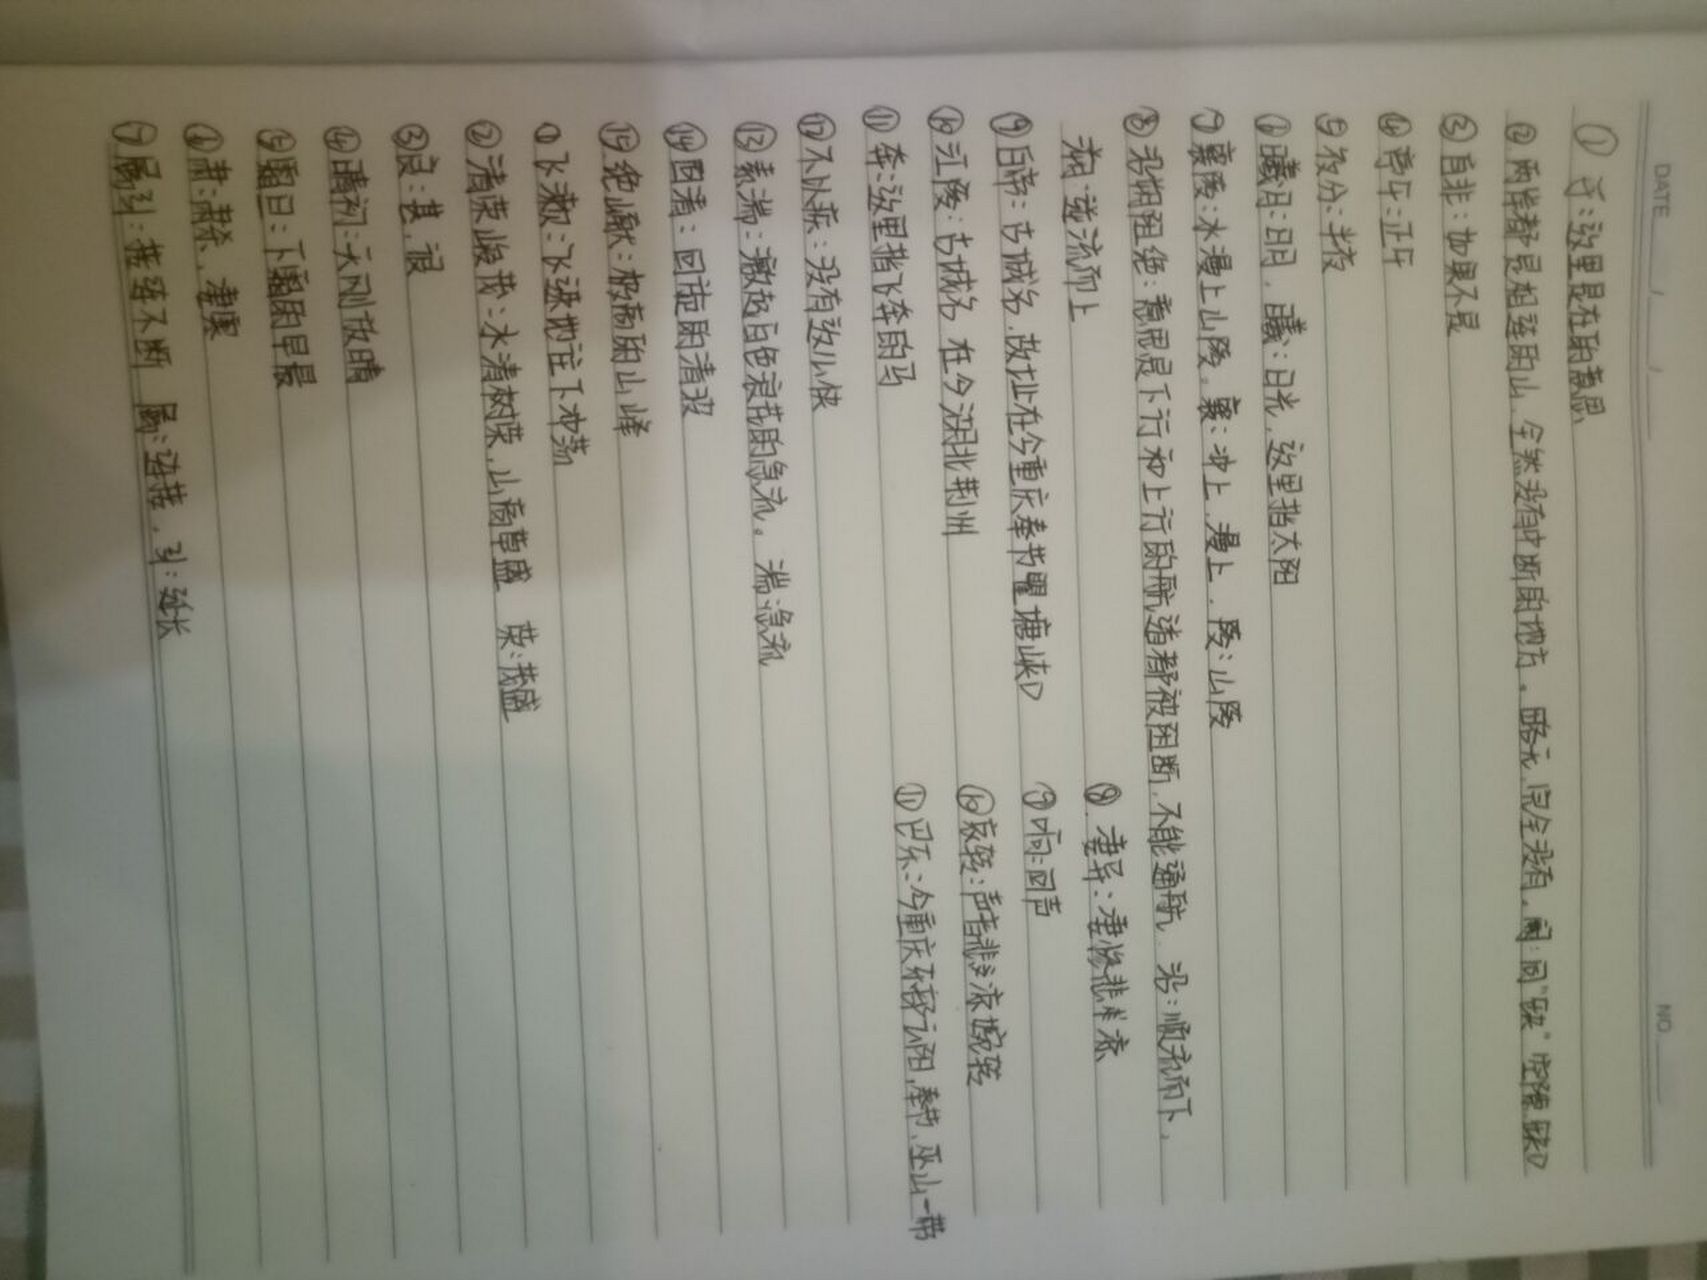 DATE / / NO.
① 于：这里是在的意思
② 两岸都是相连的山，全然没有中断的地方。略无，完全没有。阙：同“缺”空隙.缺口
③ 自非：如果不是
④ 亭午：正午
⑤ 夜分：半夜
⑥ 曦月：日月，曦：日光，这里指太阳
⑦ 襄陵：水漫上山陵。襄：冲上，漫上，陵：山陵
⑧ 沿溯阻绝：意思是下行和上行的航道都被困断，不能通航 沿：顺流而下，
溯：逆流而上
⑨ 白帝：古城名，故址在今重庆奉节瞿塘峡口
⑩ 江陵：古城名 在今湖北荆州
⑪ 奔：这里指飞奔的马
⑫ 不以疾：没有这么快
⑬ 素湍：激起白色浪花的急流。 湍：急流
⑭ 回清：回旋的清波
⑮ 绝巘：极高的山峰
① 飞漱：飞速地往下冲荡
② 清荣峻茂：水清树荣，山高草盛 荣：茂盛
③ 良：甚，很
④ 晴初：天刚放晴
⑤ 霜旦：下霜的早晨
⑥ 肃：肃杀，凄寒
⑦ 属引：接连不断 属：连接，引：延长
⑧ 凄异：凄惨悲凉
⑨ 响：回声
⑩ 哀转：声音悲凉婉转
⑪ 巴东：今重庆东部云阳，奉节，巫山一带